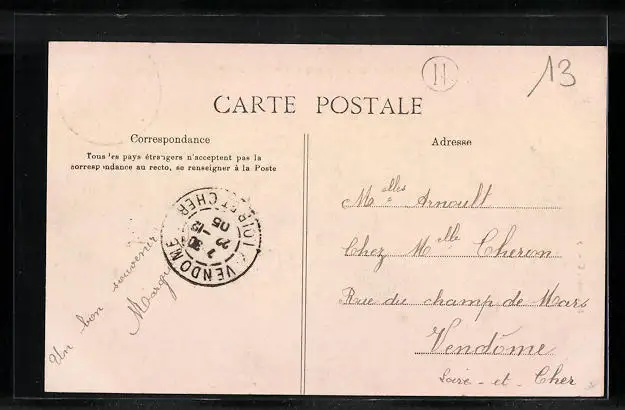 H
13
CARTE POSTALE
Correspondance
Tous les pays étrangers n'acceptent pas la
correspondance au recto, se renseigner à la Poste
Un bon souvenir
VENDOME
LOIR-ET-CHER
7 30
29 -12
05
Adresse
Melles Arnoult
Chez Melle Cheron
Rue du champ de Mars
Vendôme
Loire - et - Cher